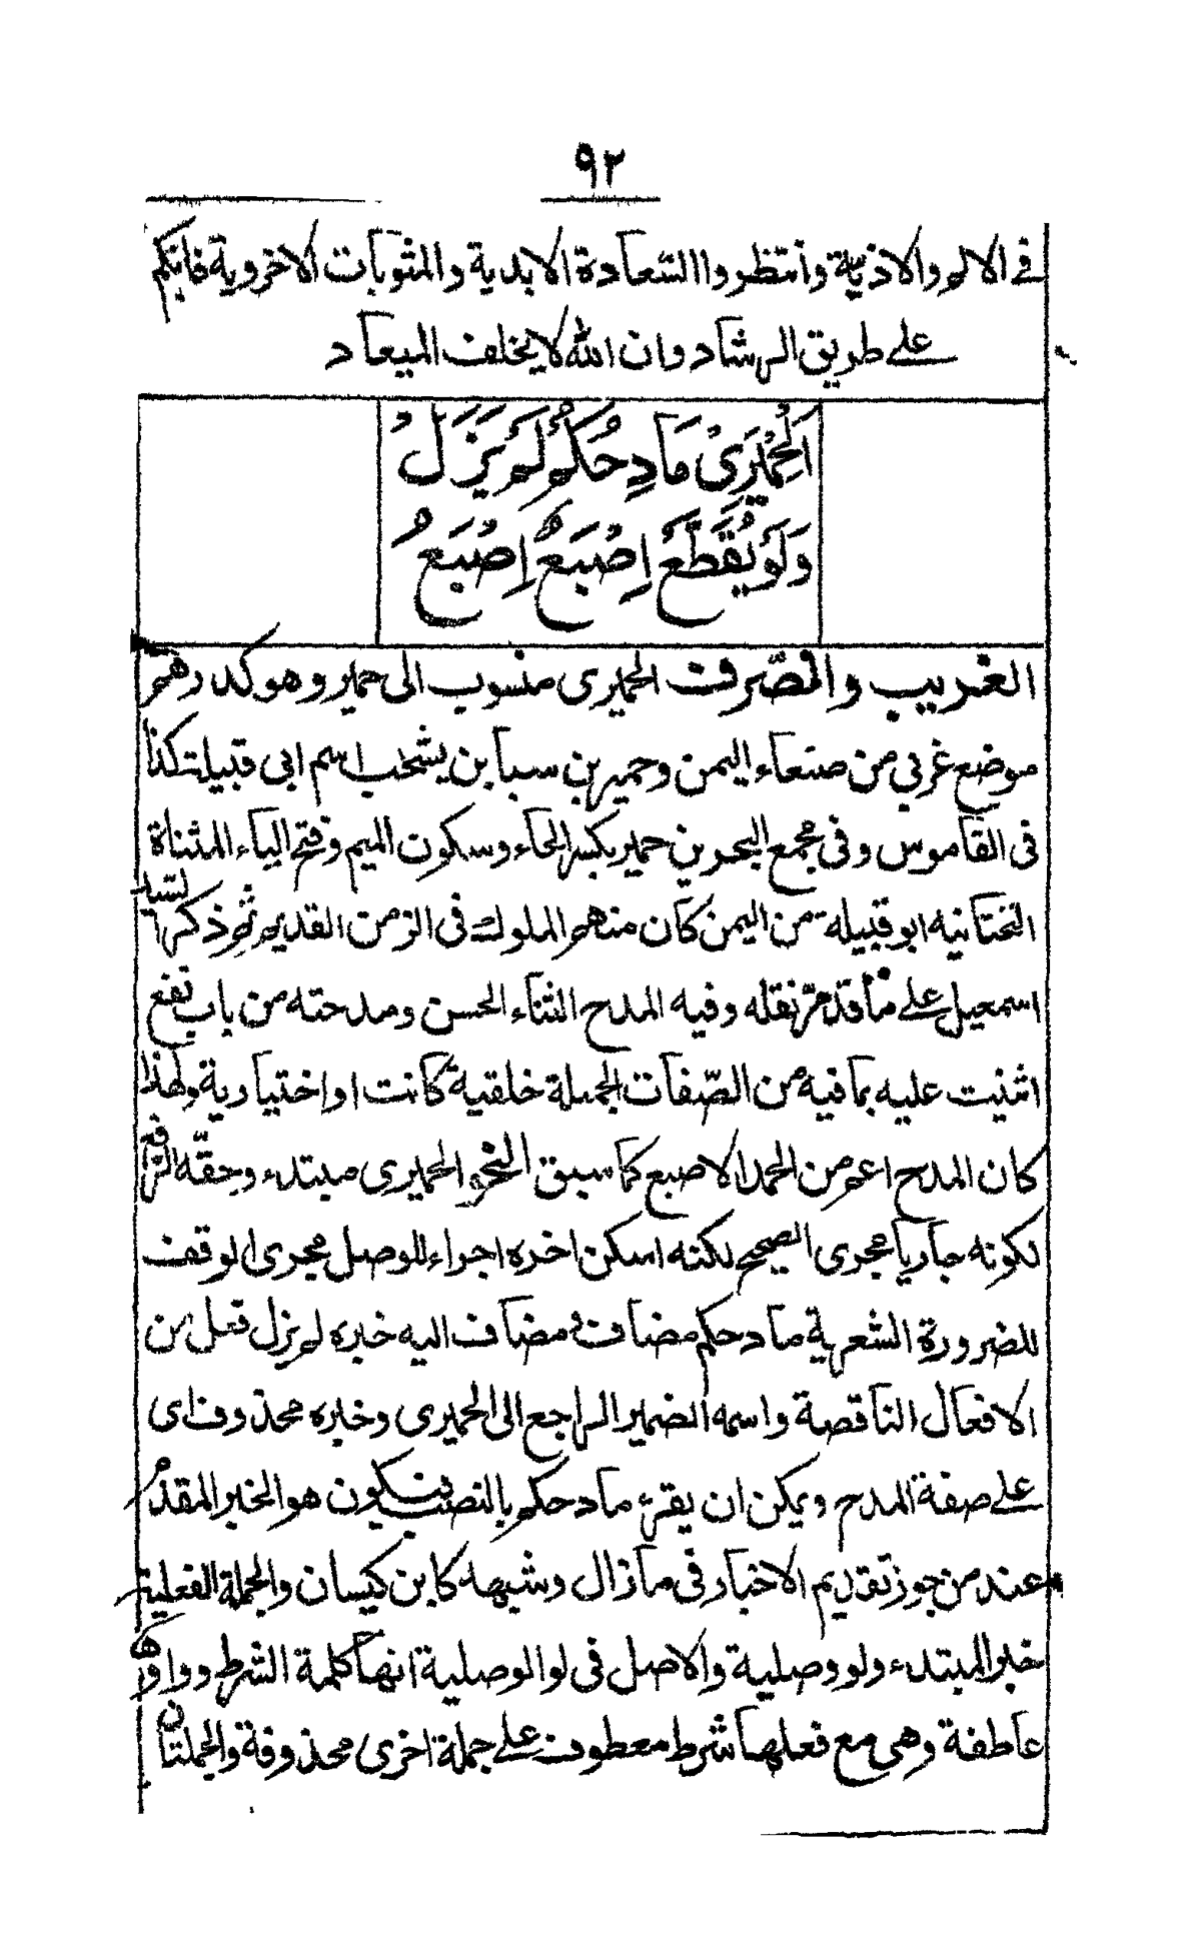 ٩٢
فى الالم والاذية وانتظروا السعادة الابدية والمثوبات الاخروية فانكم
على طريق الرشاد وان الله لا يخلف الميعاد
اَلْحِمْيَرِىْ مَادِحُكُمْ لَمْ يَزَلْ
وَلَوْ يُقَطَّعْ اِصْبَعٌ اِصْبَعُ
الغريب والصرف الحميرى منسوب الى حمير وهو كدرهم
موضع غربي من صنعاء اليمن وحمير بن سبا بن يشخب اسم ابى قبيلة كذا
فى القاموس وفى مجمع البحرين حمير بكسر الحاء وسكون الميم وفتح الياء المثناة
التحتانية ابو قبيلة من اليمن كان منهم الملوك فى الزمن القديم ثم ذكر السيد
اسمعيل على ما قد مر نقله وفيه المدح الثناء الحسن ومدحته من باب نفع
اثنيت عليه بما فيه من الصّفات الجميلة خلقية كانت او اختيارية ولهذا
كان المدح اعم من الحمد الاصبع كما سبق النحو الحميرى مبتدء وحقّه الرفع
لكونه جاريا مجرى الصحيح لكنه اسكن اخره اجراء للوصل مجرى الوقف
للضرورة الشعرية مادحكم مضاف و مضاف اليه خبره لم يزل فعل من
الافعال الناقصة واسمه الضمير الراجع الى الحميرى وخبره محذوف اى
على صفة المدح ويمكن ان يقرء مادحكم بالنصب فيكون هو الخبر المقدم
عند من جوز تقديم الاخبار فى ما زال وشبهه كابن كيسان والجملة الفعلية
خبر المبتدء ولو وصلية والاصل فى لو الوصلية انها كلمة الشرط وواوها
عاطفة وهى مع فعلها شرط معطوف على جملة اخرى محذوفة والجملتان